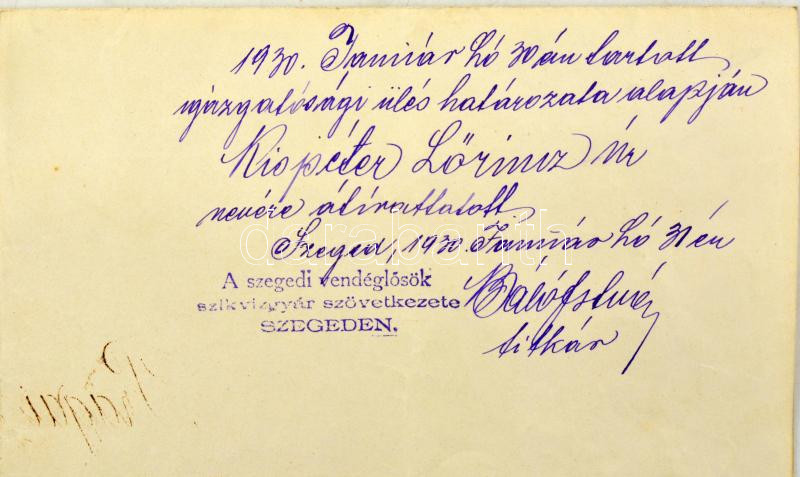 1930. Januiár hó 30 án tartott
igazgatósági ülés határozata alapján
Kispéter Lőrincz Úr
nevére átirattatott
Szeged, 1930. Januiár hó 31 én
A szegedi vendéglősök
szikvizgyár szövetkezete
SZEGEDEN.
Báló István
titkár
darabanth